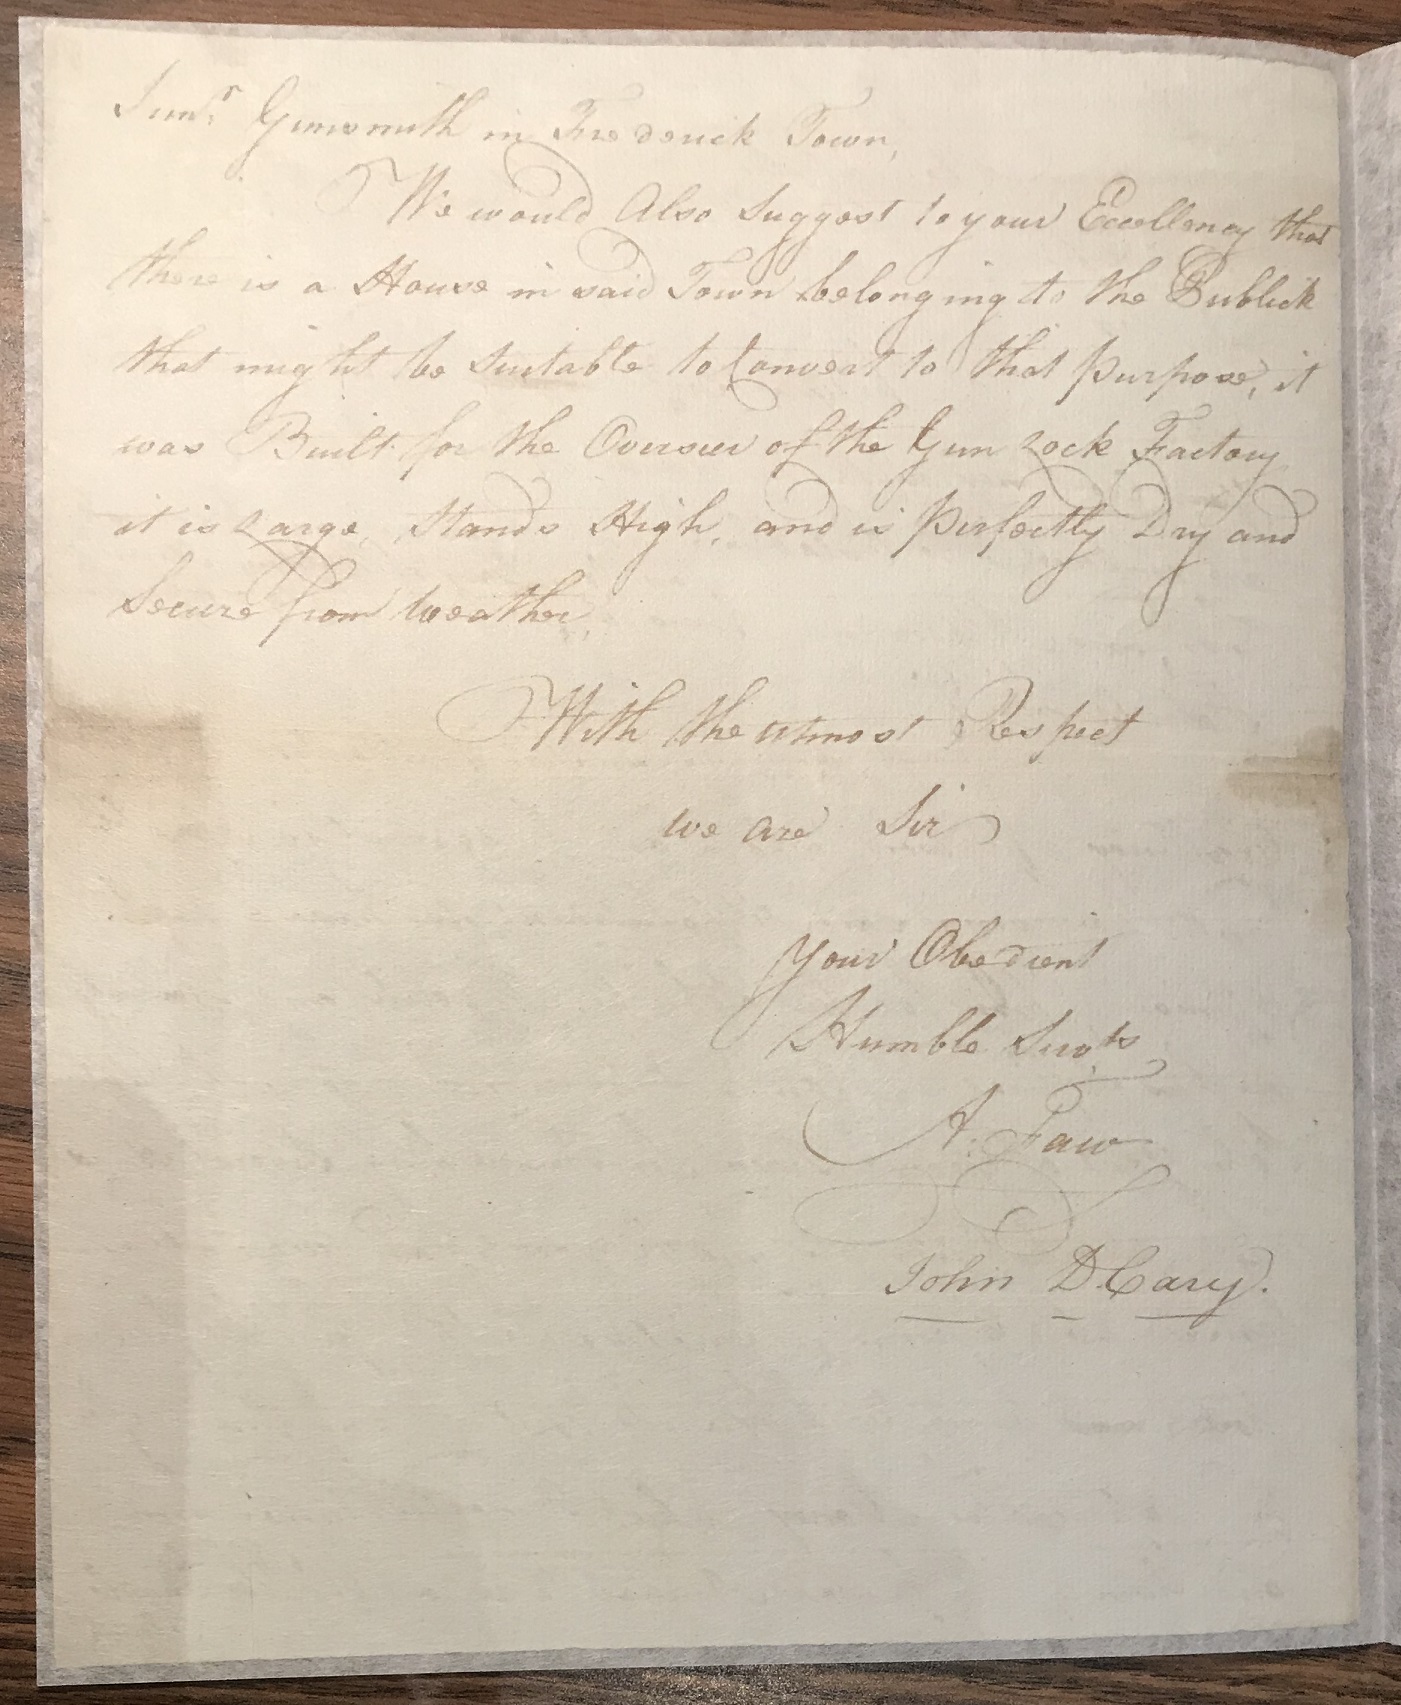 Junr Gunsmith in Frederick Town,
We would Also Suggest to your Excellency that
there is a House in said Town belonging to the Publick
that might be Suitable to Convert to that Purpose, it
was Built for the Overseer of the Gun Lock Factory
it is Large, Stands High, and is Perfectly Dry and
Secure from Weather,
With the utmost Respect
we are Sir
Your Obedient
Humble Servts
A. Faw
John D Cary.